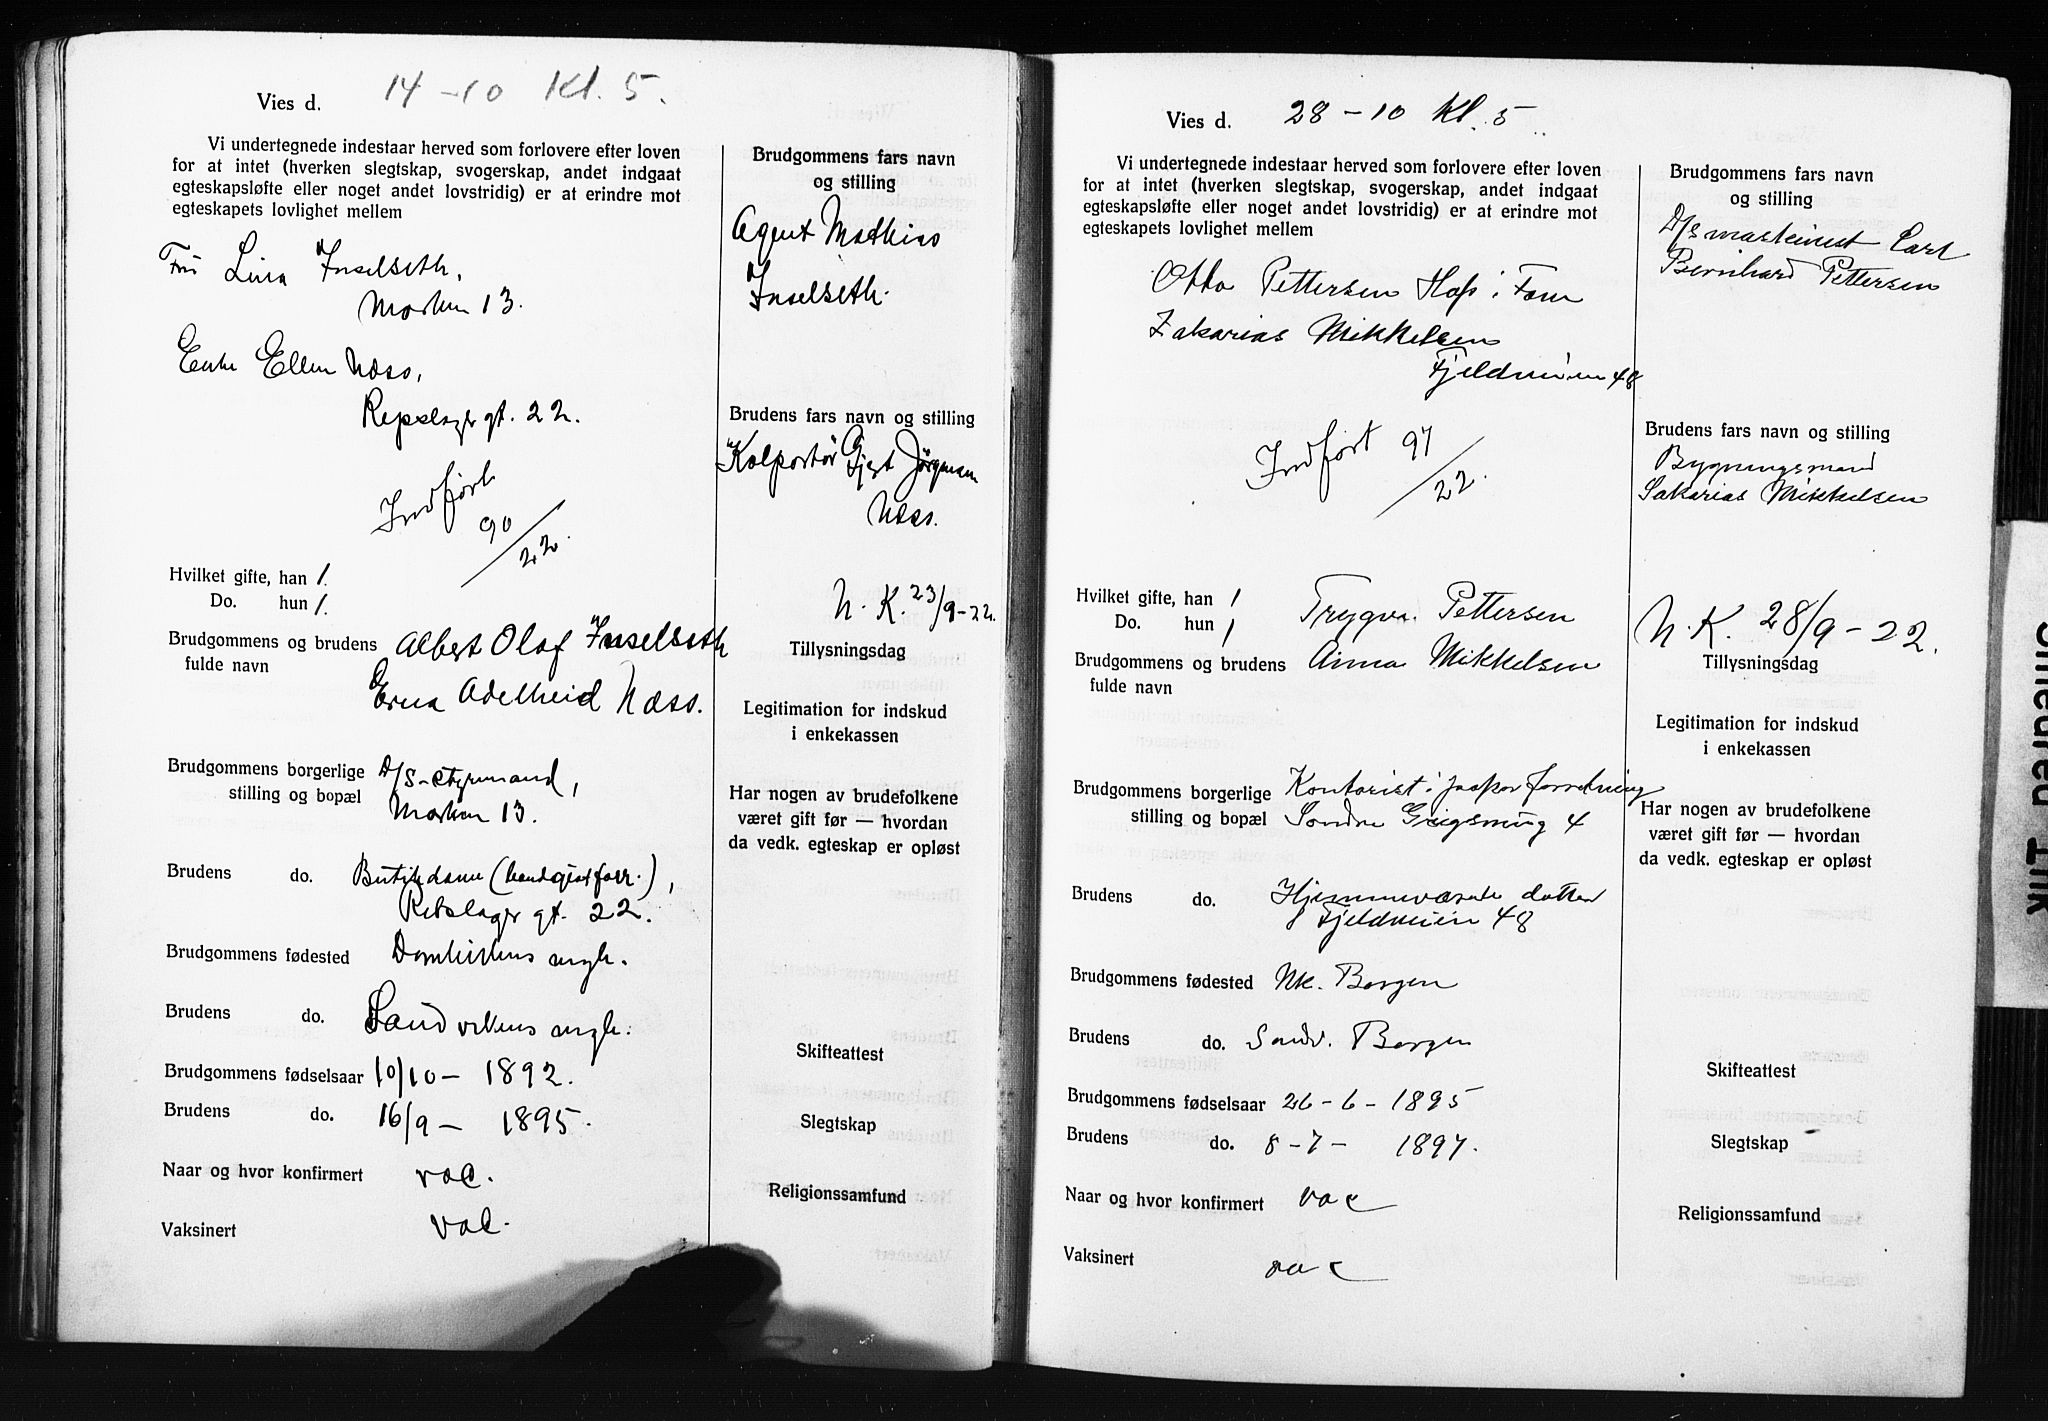 Vies d. 14-10 Kl. 5.
Vi undertegnede indestaar herved som forlovere efter loven
for at intet (hverken slegtskap, svogerskap, andet indgaat
egteskapsløfte eller noget andet lovstridig) er at erindre mot
egteskapets lovlighet mellem
Fru Lina Inselseth,
Marken 13.
Enke Ellen Næss,
Repslager gt. 22.
Indført
90/22.
Hvilket gifte, han 1.
Do. hun 1.
Brudgommens og brudens Albert Olaf Inselseth
fulde navn
Erna Adelheid Næss.
Brudgommens borgerlige D/S-styrmand,
stilling og bopæl Marken 13.
Brudens do. Butikdame
Repslager gt. 22.
Brudgommens fødested Domkirkens mgh.
Brudens do. Sandvikens mgh.
Brudgommens fødselsaar 10/10 - 1892.
Brudens do. 16/9 - 1895.
Naar og hvor konfirmert vac.
Vaksinert vac.
Brudgommens fars navn
og stilling
Agent Mathias
Inselseth.
Brudens fars navn og stilling
Kolportør Gjert Jørgensen
Næss.
N. K. 23/9-22.
Tillysningsdag
Legitimation for indskud
i enkekassen
Har nogen av brudefolkene
været gift før — hvordan
da vedk. egteskap er opløst
Skifteattest
Slegtskap
Religionssamfund
Vies d. 28-10 Kl. 5
Vi undertegnede indestaar herved som forlovere efter loven
for at intet (hverken slegtskap, svogerskap, andet indgaat
egteskapsløfte eller noget andet lovstridig) er at erindre mot
egteskapets lovlighet mellem
Otto Pettersen Hop i Fane
Zakarias Mikkelsen
Fjeldveien 48
Indført 97/22.
Hvilket gifte, han 1
Do. hun 1
Trygve Pettersen
Brudgommens og brudens Anna Mikkelsen
fulde navn
Brudgommens borgerlige Kontorist i forretning
stilling og bopæl Søndre 4
Brudens do. Hjemmeværende datter
Fjeldveien 48
Brudgommens fødested Nk. Bergen
Brudens do. Sandv. Bergen
Brudgommens fødselsaar 26-6-1895
Brudens do. 8-7- 1897.
Naar og hvor konfirmert vac
Vaksinert vac
Brudgommens fars navn
og stilling
D/S maskinist Carl
Bernhard Pettersen
Brudens fars navn og stilling
Bygningsmand
Sakarias Mikkelsen
N. K. 28/9-22.
Tillysningsdag
Legitimation for indskud
i enkekassen
Har nogen av brudefolkene
været gift før — hvordan
da vedk. egteskap er opløst
Skifteattest
Slegtskap
Religionssamfund